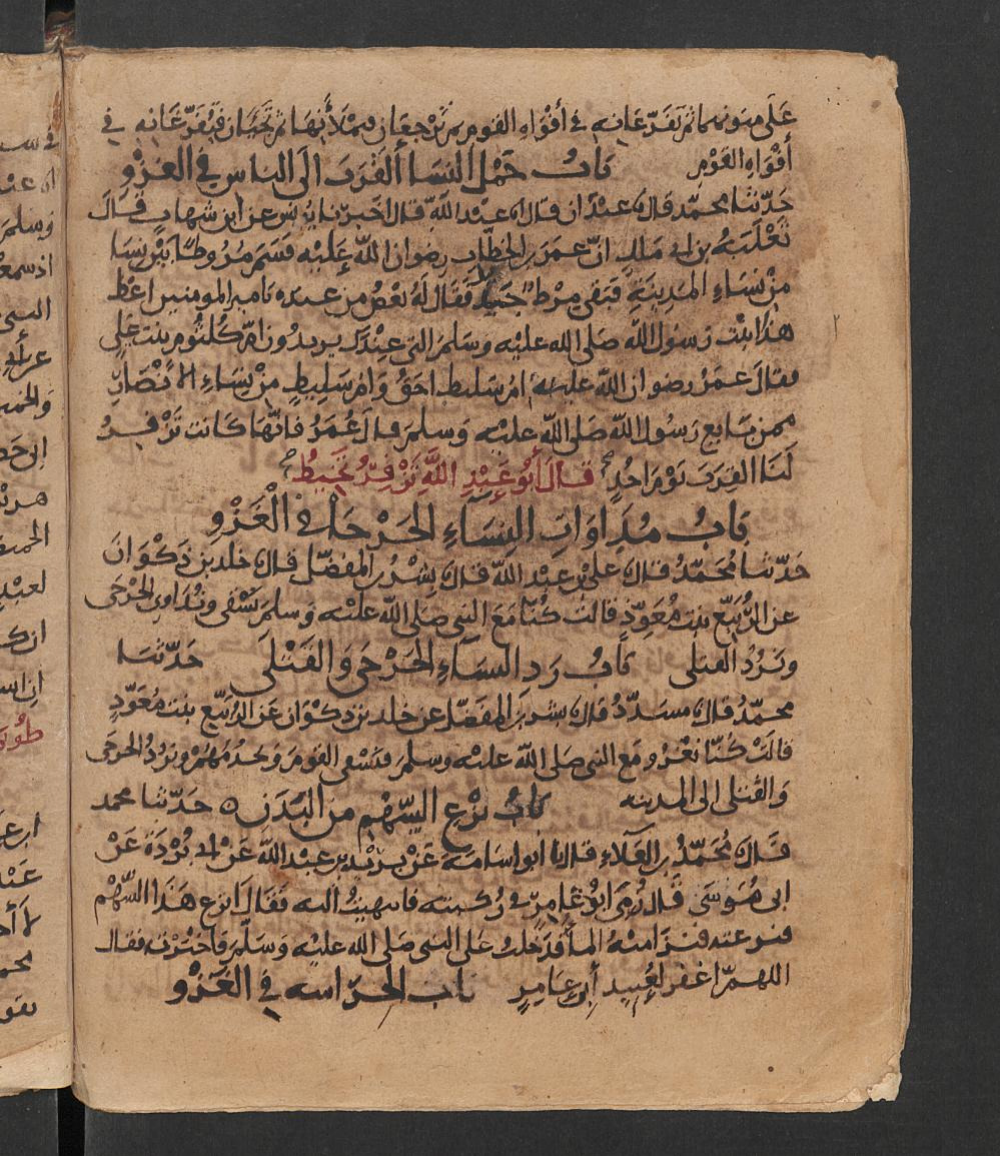 عَلَى متونهما ثم تفرّغانه في أفوَاهِ القوم ثم تَرجعَان فتملَأنهَا ثم تجيَئان فتفرّغَانِه في
أفْوَاهِ القَوْمِ بَابُ حَمْل النسَا القرَبَ الَى الناس في الغزْو
حَدّثنا محمّد قال نا عبْدَان قال انا عبْد اللّه قال اخبرنا يونس عن ابن شهاب قال
ثعْلبَة بن ابي مَالك انّ عمَرَ بن الخطّاب رضوان اللّه عَلَيْه قسَمَ مُرُوطًا بَيْن نسَا
منْ نسَاءِ المدِينَةِ فبَقى مِرْط جَيّدٌ فقَال لهُ بعْضُ من عنده يَامير المومنين اعط
هذا بنْت رَسُول اللّه صَلى الله عليْه وسَلم التي عِنْدَك يريدُون امّ كلثُوم بنتَ عَلي
فقَالَ عمَرُ رضوان اللّه عليه امُ سَليط احَقُ وَامُ سَلِيطٍ مِنْ نِسَاءِ الأنْصَارِ
ممن بَايع رَسُول اللّه صَلى اللّه عليْه وَسلم قال عُمَرُ فانّهَا كَانت تَزْفِرُ
لنَا القِرَبَ يَوْمَ احُدٍ قَالَ أبُو عَبْدِ اللَّهِ تَزْفِرُ تَخِيطُ
بَابُ مُدَاوَاةِ النِسَاءِ الجَرْحَا في الْغَزْوِ
حَدّثنا مُحَمّدٌ قال نا علىُ بْن عبْد اللّه قال نا بِشْرُ بن المفضّل قال نا خلد بن ذَكْوَانَ
عن الرُبَيّع بنت مُعَوّذٍ قالت كُنّا مَعَ النبي صَلى اللّه عليْه وَسلم نَسْقى ونُدَاوي الجَرْحَى
ونَرُدُ القتلى بَابُ رَد النسَآءِ الجَرْحَى وَالقَتْلَى حَدّثنَا
محمّد قال نا مسَدّدٌ قال نا بشر بن المفضّل عن خلد بن ذكْوَان عَن الرُبَيّع بنت مُعَوّذٍ
قالَتْ كُنّا نغْزُو مَع النبي صَلى اللّه عليْه وسلم فنسْقى القومَ وَنخدُمهُمْ ونَرُدُ الجرحَى
وَالقَتلى الى المدينه بَابُ نَزْعِ السّهْمِ من البَدَن حَدّثنا محمد
قَال نا مُحَمّدُ بن العَلَاءِ قال نا ابو اسامة عَنْ بُرَيْد بن عبْد اللّه عَن ابي بُرْدَة عَنْ
ابي مُوسَى قَال رُمِيَ ابُو عَامِرٍ في رُكبته فانتهيتُ اليه فقَال انزِع هَذَا السّهْم
فنزعته فنزَا منْهُ المآُ فدَخلت عَلى النبي صَلى الله عليْه وَسَلم فاخبَرْته فقال
اللهمّ اغفر لعُبَيد أبي عَامِرٍ بَابُ الحِرَاسه في الغَزْو